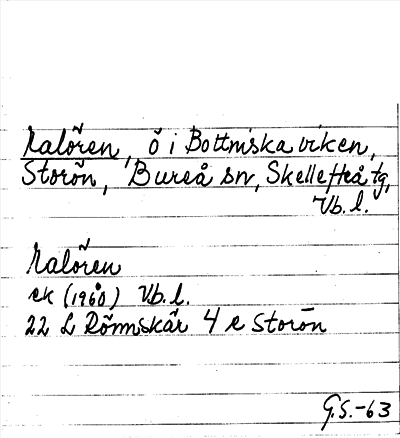 Kalören, ö i Bottniska viken,
Storön, Bureå sn, Skellefteå tg,
Vb. l.
Kalören
ek (1960) Vb. l.
22 L Rönnskär 4 e Storön
G.S.-63